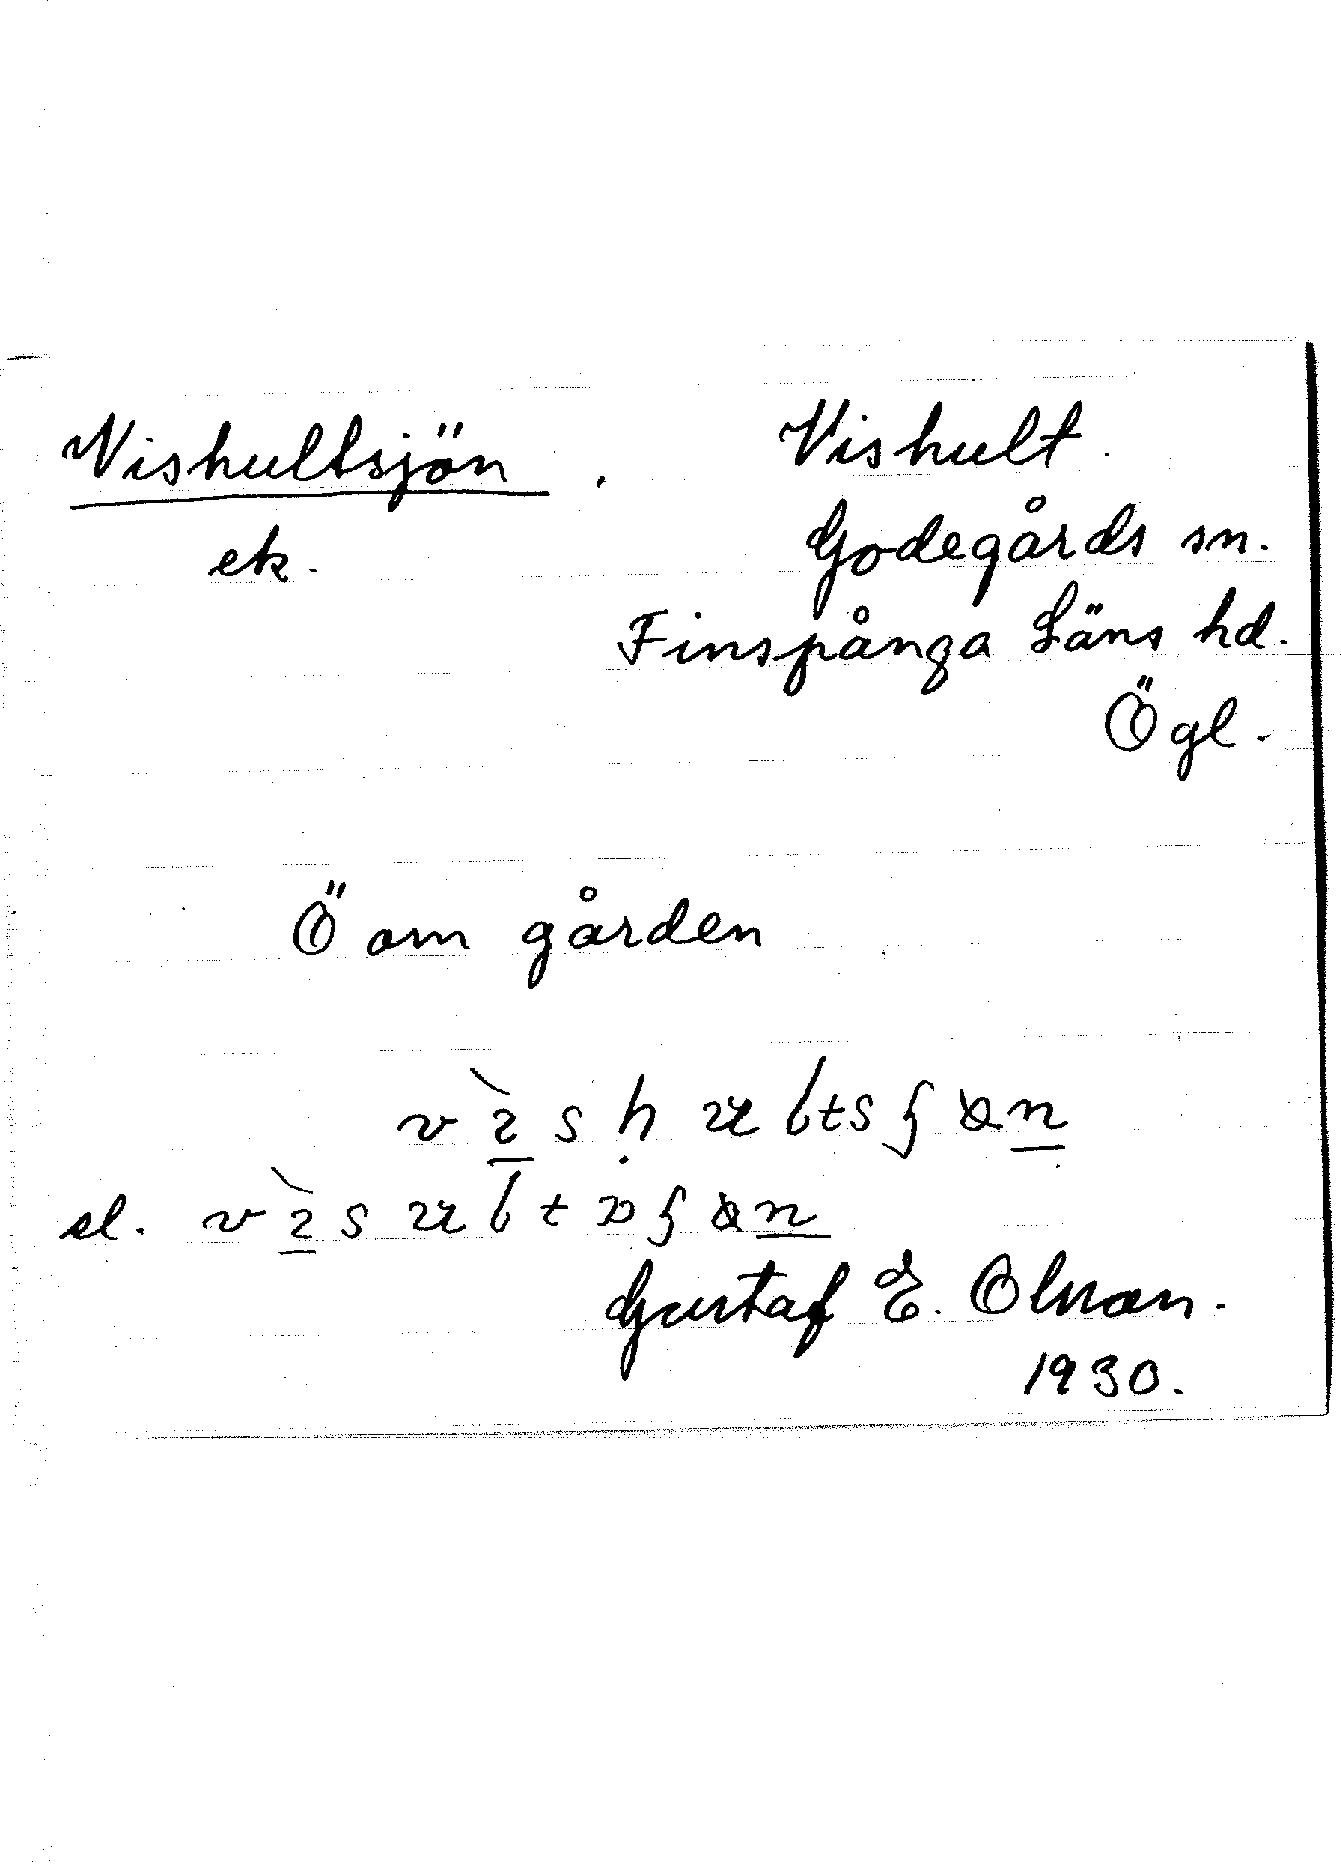 Vishultsjön . Vishult.
ek. Godegårds sn.
Finspånga Läns hd.
Ögl.
Ö om gården
sl.
Gustaf E. Olsson.
1930.